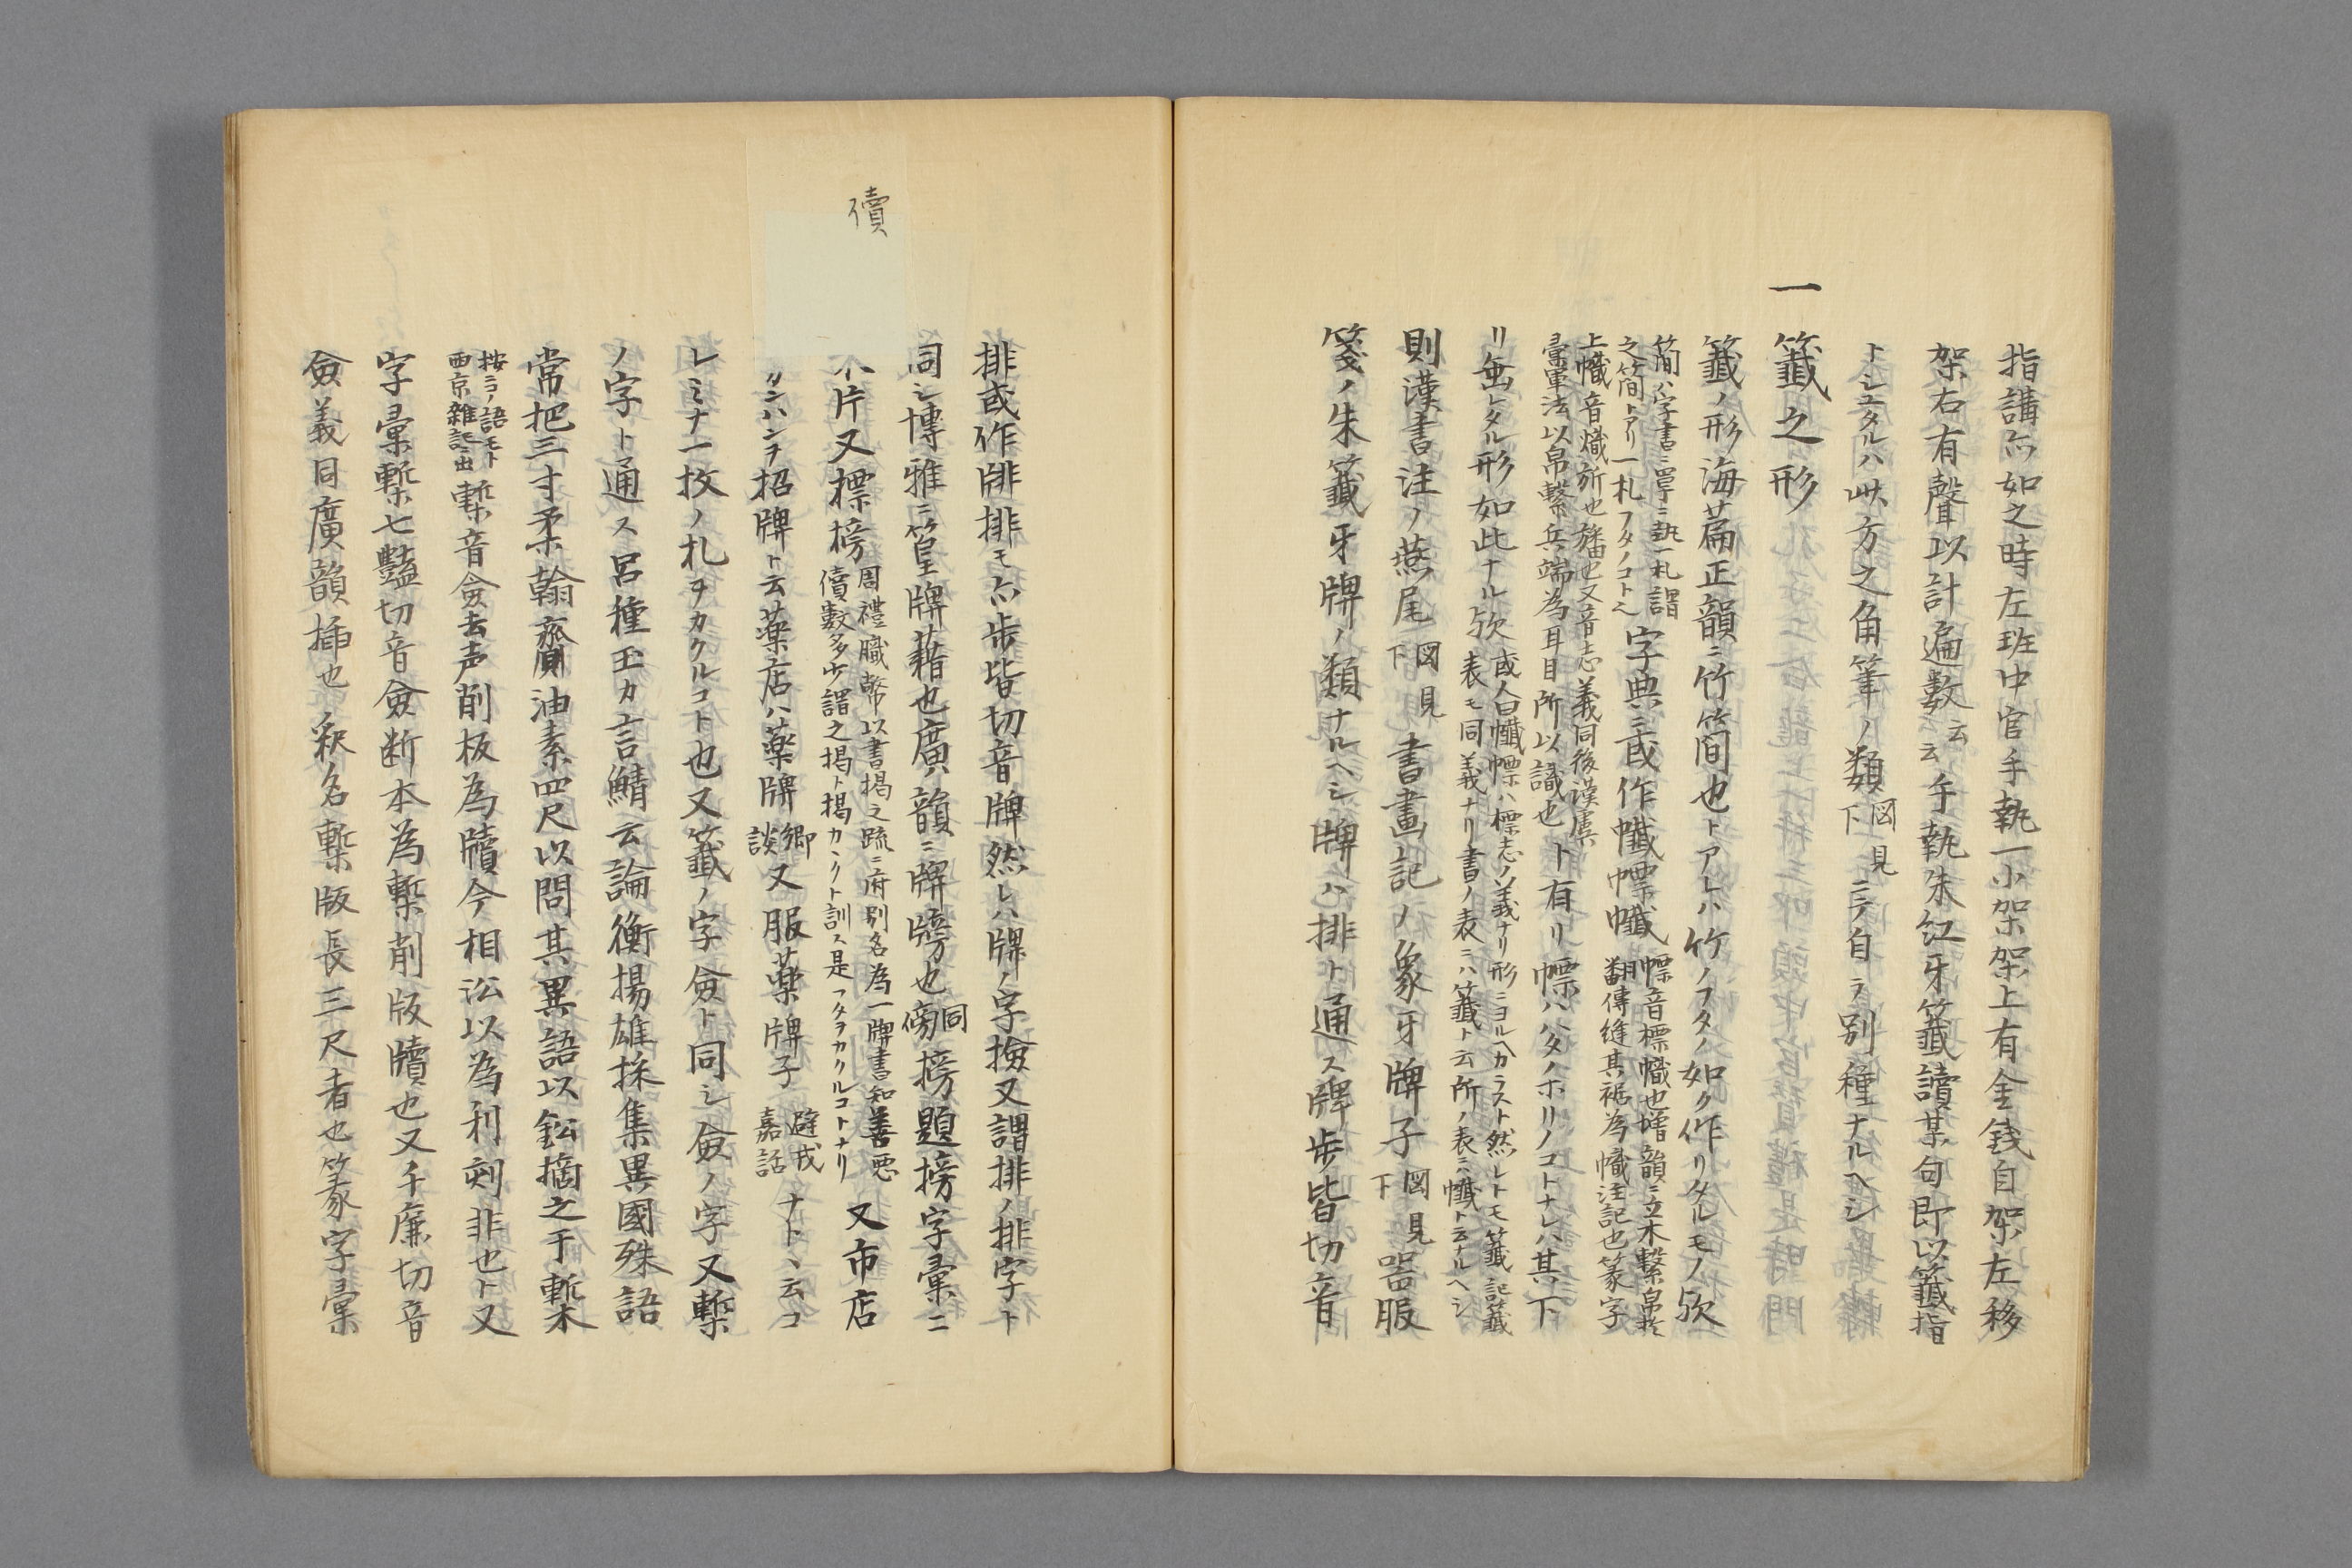 指講亦如之時左班中官手執一小架架上有金銭自架左移
架右有聲以計遍數云云手執朱紅牙籤讀某句即以籤指
トシユタルハ此方之角筆ノ類図見下ニテ自ラ別種ナルヘシ
一
籤之形
籤ノ形海篇正韻ニ竹簡也トアレハ竹ノフタノ如ク作リタルモノ欤
簡ハ字書ニ單ニ執一札謂
之簡トアリ一札フタノコト也
字典ニ或作幟幖幟
幖音標幟也増韻ニ立木繋帛於
上幟音熾斾也旛也又音志義同後漢虞
翻傳縫其裾為幟注記也篆字
彙軍法以帛繋兵端為耳目所以識也
ト有リ幖ハハタノホリノコトナレハ其下
リ垂レタル形如此ナル欤
或人曰幟幖ハ標志ノ義ナリ形ニヨルヘカラスト然レトモ籤記籤
表モ同義ナリ書ノ表ニハ籤ト云所ノ表ニハ幟ト云ナルヘシ
則漢書注ノ燕尾図見下書畫記ノ象牙牌子図見下器服
箋ノ朱籤牙牌ノ類ナルヘシ牌ハ排ト通ス牌歩皆切音
排或作𤗏排モ亦歩皆切音牌然レハ牌ノ字撿又謂排ノ排字ト
同シ博雅ニ篁牌藉也廣韻ニ牌牓也牓同榜題榜字彙ニ
儥
木片又標榜
周禮職幣以書掲之疏ニ府別各為一牌書知善悪
儥數多少謂之掲ト掲カヽクト訓ス是フタヲカクルコトナリ
又市店
ノカンハンヲ招牌ト云薬店ハ薬牌郷談又服薬牌子避戎嘉話ナトヽ云コ
レミナ一枚ノ札ヲカクルコト也又籤ノ字僉ト同シ僉ノ字又槧
ノ字ト通ス呂種玉カ言鯖云論衡揚雄採集異國殊語
常把三寸柔翰齎油素四尺以問其異語以鉛摘之于槧
按ニコノ語モト
西京雜記ニ出
槧音僉去声削板為牘今相訟以為利剡非也ト又
字彙槧七豔切音僉断本為槧削版牘也又千廉切音
僉義同廣韻挿也釈名槧版長三尺者也篆字彙